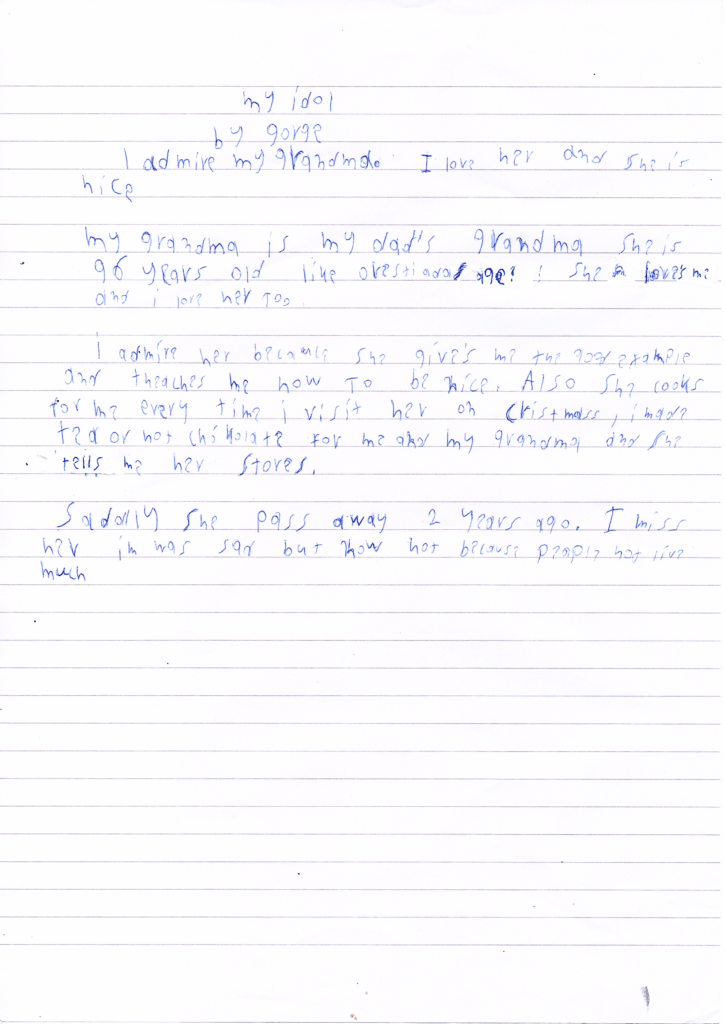 my idol
by gorge
I admire my grandma. I love her and she is
nice
my grandma is my dad's grandma she is
96 years old like age! ! she loves me
and i love her too.
I admire her because she give's me the good example
and theaches me how to be nice. Also she cooks
for me every time i visit her on Cristmass, i made
tea or hot for me and my grandma and she
tells me her stores.
Sadally she pass away 2 years ago. I miss
her im was sad but now not because people not live
much